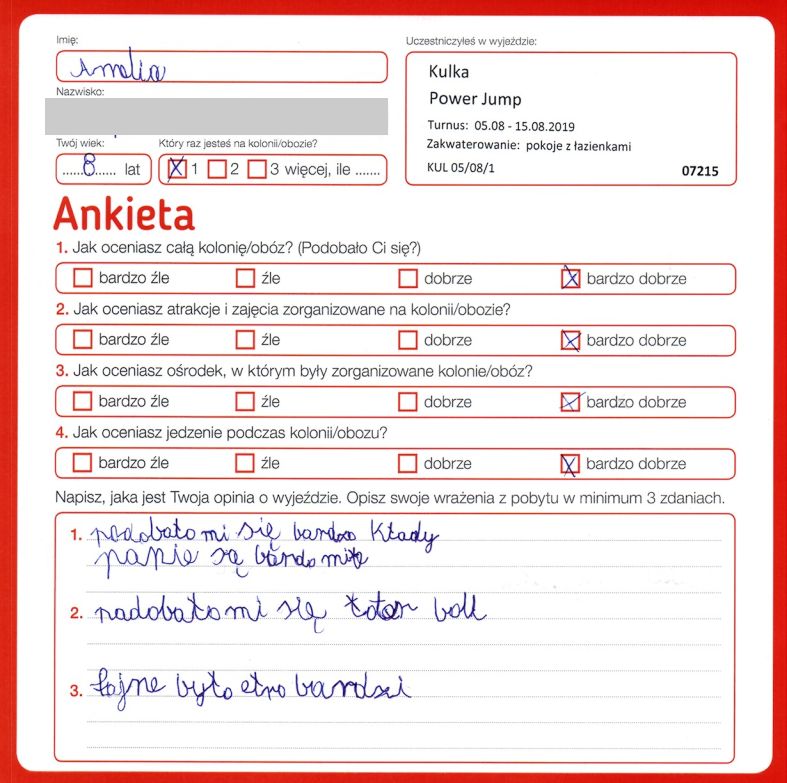 Imię:
Amelia
Nazwisko:
Twój wiek:
8 lat
Który raz jesteś na kolonii/obozie?
1 2 3 więcej, ile .......
Uczestniczyłeś w wyjeździe:
Kulka
Power Jump
Turnus: 05.08 - 15.08.2019
Zakwaterowanie: pokoje z łazienkami
KUL 05/08/1 07215
Ankieta
1. Jak oceniasz całą kolonię/obóz? (Podobało Ci się?)
bardzo źle źle dobrze bardzo dobrze
2. Jak oceniasz atrakcje i zajęcia zorganizowane na kolonii/obozie?
bardzo źle źle dobrze bardzo dobrze
3. Jak oceniasz ośrodek, w którym były zorganizowane kolonie/obóz?
bardzo źle źle dobrze bardzo dobrze
4. Jak oceniasz jedzenie podczas kolonii/obozu?
bardzo źle źle dobrze bardzo dobrze
Napisz, jaka jest Twoja opinia o wyjeździe. Opisz swoje wrażenia z pobytu w minimum 3 zdaniach.
1. podobało mi się bardzo Kłady
panie są bardo miłe
2. padobało mi się boll
3. fajne było bardzi